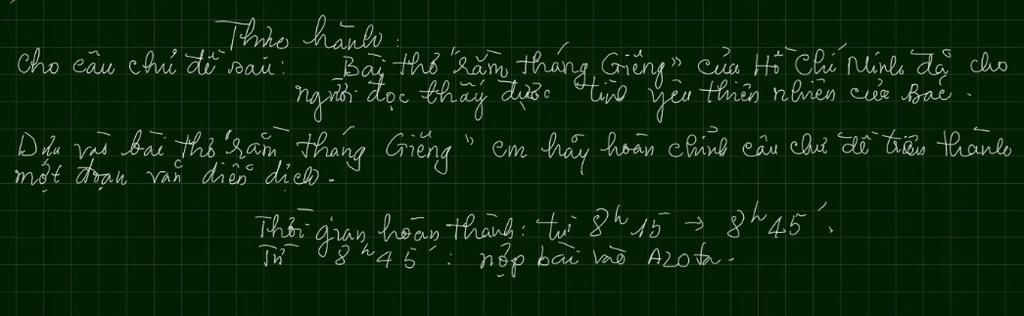 Thực hành:
Cho câu chủ đề sau: Bài thơ "Rằm tháng Giêng" của Hồ Chí Minh đã cho
người đọc thấy được tình yêu thiên nhiên của Bác.
Dựa vào bài thơ "Rằm tháng Giêng" em hãy hoàn chỉnh câu chủ đề trên thành
một đoạn văn diễn dịch.
Thời gian hoàn thành: từ 8h15 → 8h45'.
Từ 8h45': nộp bài vào Azota.